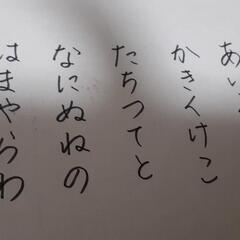 あい
かきくけこ
たちつてと
なにぬねの
はまやらわ